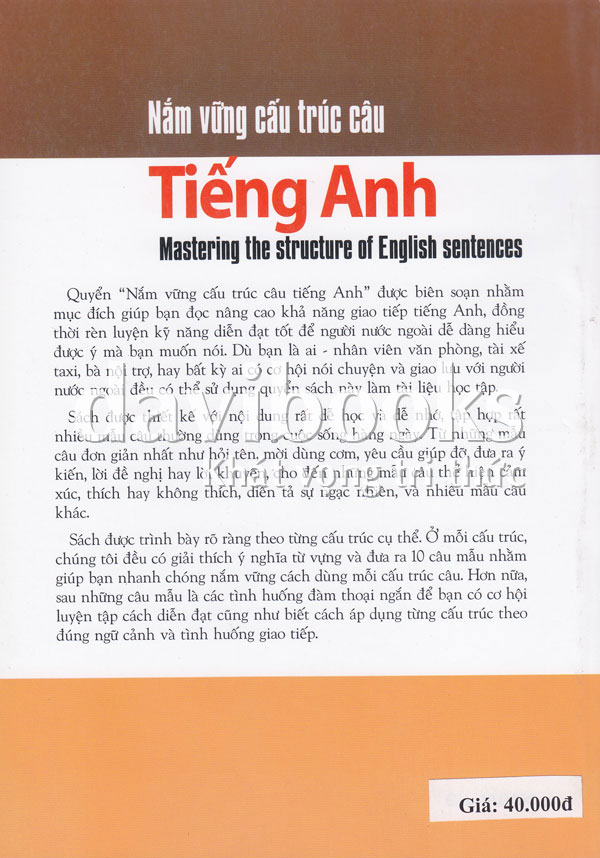 Nắm vững cấu trúc câu
Tiếng Anh
Mastering the structure of English sentences
Quyển “Nắm vững cấu trúc câu tiếng Anh” được biên soạn nhằm
mục đích giúp bạn đọc nâng cao khả năng giao tiếp tiếng Anh, đồng
thời rèn luyện kỹ năng diễn đạt tốt để người nước ngoài dễ dàng hiểu
được ý mà bạn muốn nói. Dù bạn là ai - nhân viên văn phòng, tài xế
taxi, bà nội trợ, hay bất kỳ ai có cơ hội nói chuyện và giao lưu với người
nước ngoài đều có thể sử dụng quyển sách này làm tài liệu học tập.
davibooks
Sách được thiết kế với nội dung rất dễ học và dễ nhớ, tập hợp rất
nhiều mẫu câu thường dùng trong cuộc sống hàng ngày. Từ những mẫu
câu đơn giản nhất như hỏi tên, mời dùng cơm, yêu cầu giúp đỡ, đưa ra ý
kiến, lời đề nghị hay lời khuyên, cho đến những mẫu câu thể hiện cảm
Khát vọng tri thức
xúc, thích hay không thích, diễn tả sự ngạc nhiên, và nhiều mẫu câu
khác.
Sách được trình bày rõ ràng theo từng cấu trúc cụ thể. Ở mỗi cấu trúc,
chúng tôi đều có giải thích ý nghĩa từ vựng và đưa ra 10 câu mẫu nhằm
giúp bạn nhanh chóng nắm vững cách dùng mỗi cấu trúc câu. Hơn nữa,
sau những câu mẫu là các tình huống đàm thoại ngắn để bạn có cơ hội
luyện tập cách diễn đạt cũng như biết cách áp dụng từng cấu trúc theo
đúng ngữ cảnh và tình huống giao tiếp.
Giá: 40.000đ